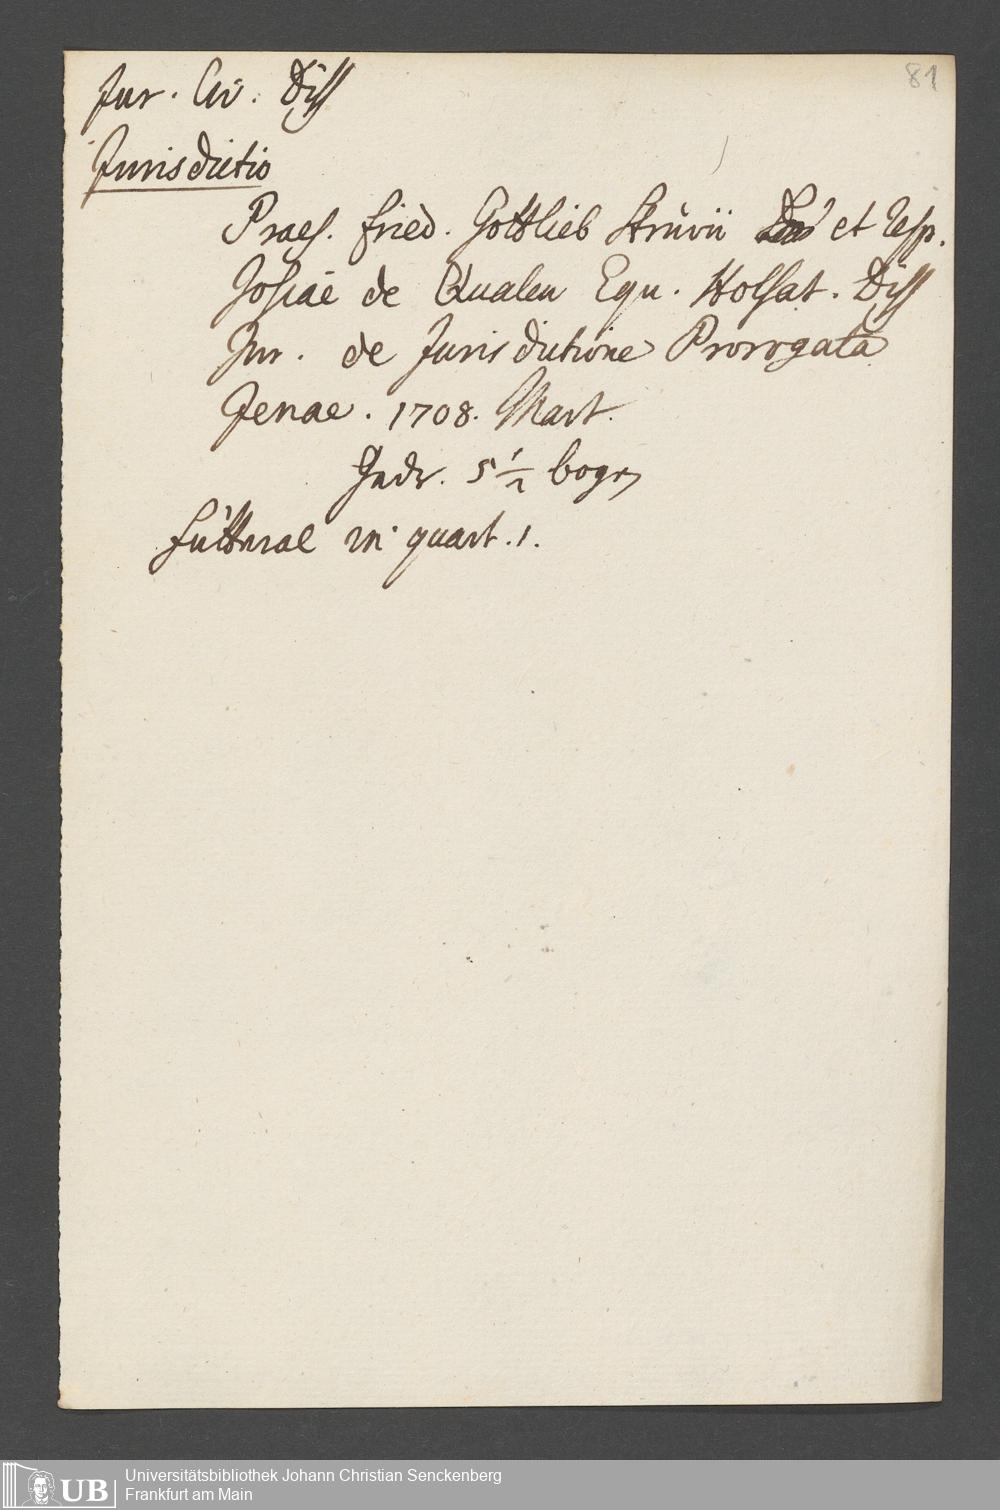 81
Jur. Civ. Diss
Jurisdictio
Praes. Fried. Gottlieb Struvii et Resp.
Josiae de Qualen Equ. Holsat. Diss
Jur. de Jurisdictione Prorogata
Jenae. 1708. Mart.
Gedr. 5 1/2 bogen
Futteral in quart. 1.
UB
Universitätsbibliothek Johann Christian Senckenberg
Frankfurt am Main